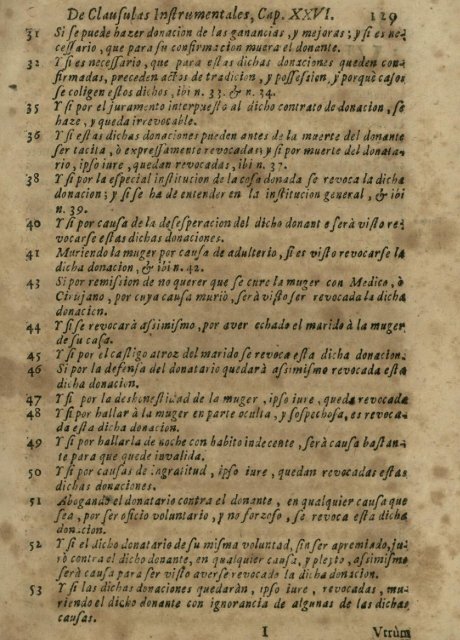 De Clausulas Instrumentales, Cap. XXVI. 129
31 Si se puede hazer donacion de las ganancias, y mejoras; y si es ne-
cessario, que para su confirmacion muera el donante.
32 Y si es necessario, que para estas dichas donaciones queden con-
firmadas, preceden actos de tradicion, y possession, y porquè casos
se coligen estos dichos, ibi n. 33. & n. 34.
35 Y si por el juramento interpuesto al dicho contrato de donacion, se
haze, y queda irrevocable.
36 Y si estas dichas donaciones pueden antes de la muerte del donante
ser tacita, ò expressamente revocadas; y si por muerte del donata-
rio, ipso iure, quedan revocadas, ibi n. 37.
38 Y si por la especial institucion de la cosa donada se revoca la dicha
donacion; y si se ha de entender en la institucion general, & ibi
n. 39.
40 Y si por causa de la desesperacion del dicho donante serà visto re-
vocarse estas dichas donaciones.
41 Muriendo la muger por causa de adulterio, si es visto revocarse la
dicha donacion, & ibi n. 42.
43 Si por remission de no querer que se cure la muger con Medico, ò
Cirujano, por cuya causa muriò, serà visto ser revocada la dicha
donacion.
44 Y si se revocarà assimismo, por aver echado el marido à la muger
de su casa.
45 Y si por el castigo atroz del marido se revoca esta dicha donacion.
46 Si por la defensa del donatario quedarà assimismo revocada esta
dicha donacion.
47 Y si por la deshonestidad de la muger, ipso iure, queda revocada
48 Y si por hallar à la muger en parte oculta, y sospechosa, es revoca-
da esta dicha donacion.
49 Y si por hallarla de noche con habito indecente, serà causa bastan-
te para que quede invalida.
50 Y si por causas de ingratitud, ipso iure, quedan revocadas estas
dichas donaciones.
51 Abogando el donatario contra el donante, en qualquier causa que
sea, por ser oficio voluntario, y no forzoso, se revoca esta dicha
donacion.
52 Y si el dicho donatario de su misma voluntad, sin ser apremiado, ju-
rò contra el dicho donante, en qualquier causa, y pleyto, assimismo
serà causa para ser visto averse revocado la dicha donacion.
53 Y si las dichas donaciones quedaràn, ipso iure, revocadas, mu-
riendo el dicho donante con ignorancia de algunas de las dichas
causas.
I Utrùm